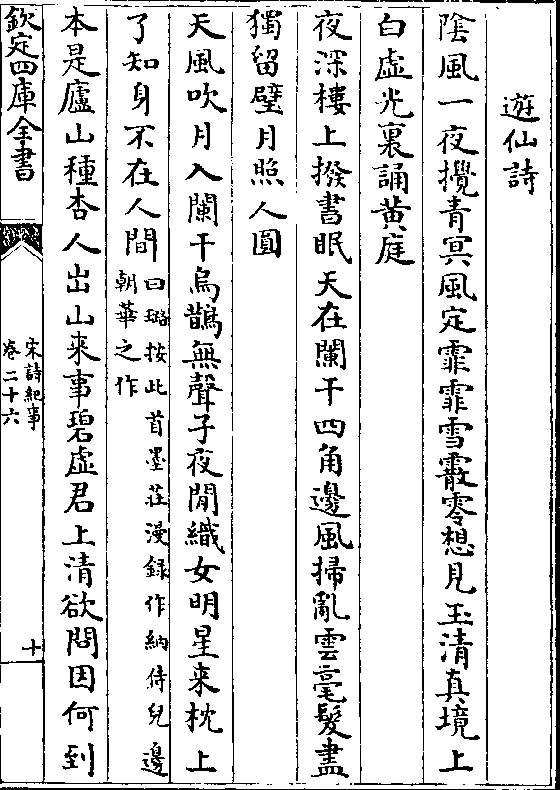 遊仙詩
隂風一夜攪青冥風定霏霏雪霰零想見玉清真境上
白虛光裏誦黃庭
夜深樓上撥書眠天在闌干四角邊風掃亂雲毫髮盡
獨留璧月照人圓
天風吹月入闌干烏鵲無聲子夜閒織女明星来枕上
了知身不在人間
曰璐按此首墨莊漫録作納侍兒邊
朝華之作
本是廬山種杏人出山来事碧虛君上清欲問因何到
欽定四庫全書
宋詩紀事
卷二十六
十